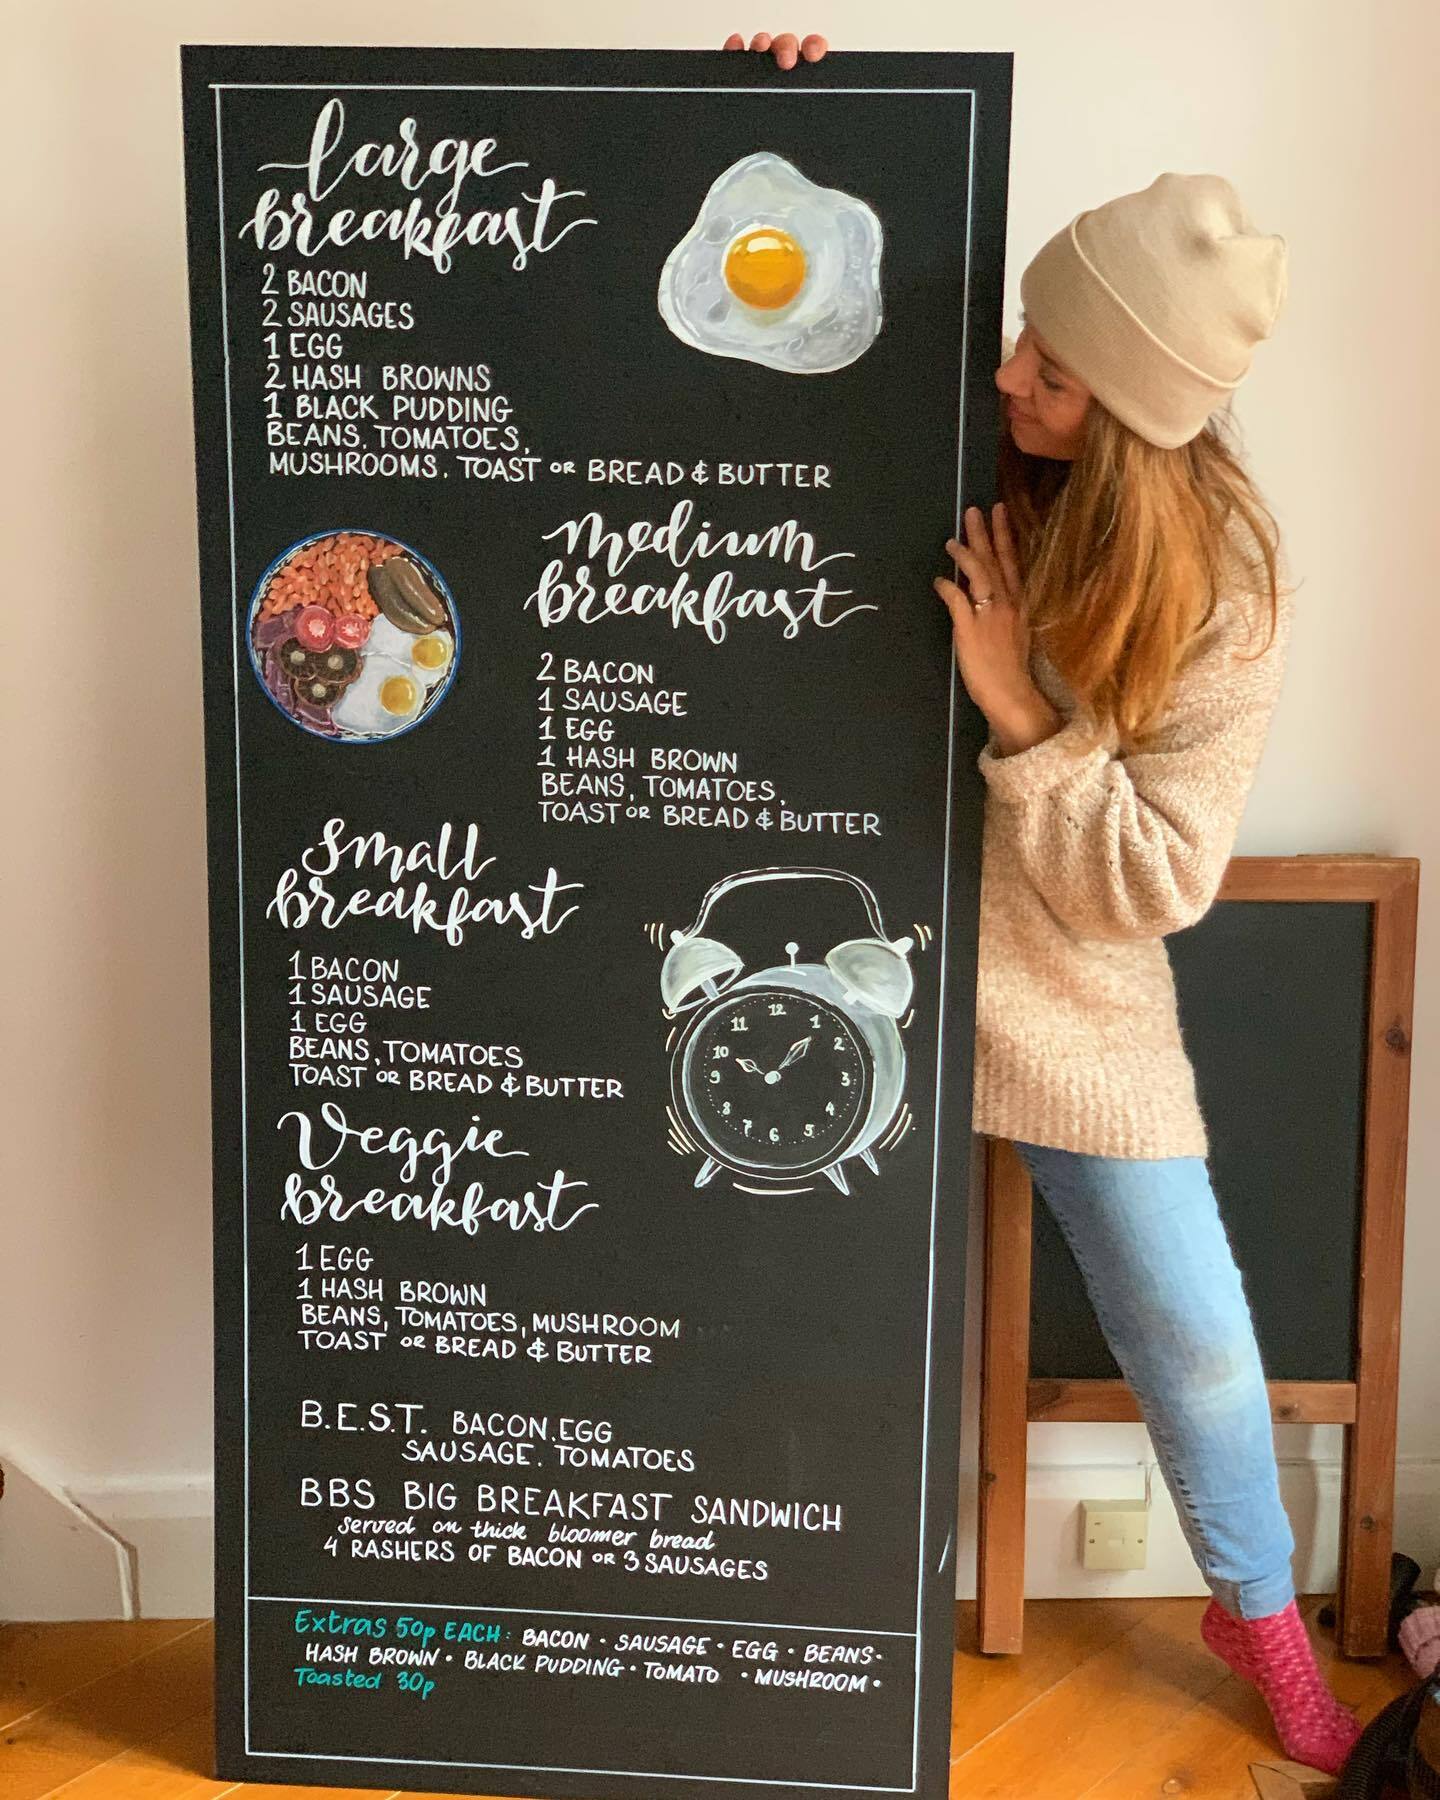 large
breakfast
2 BACON
2 SAUSAGES
1 EGG
2 HASH BROWNS
1 BLACK PUDDING
BEANS, TOMATOES,
MUSHROOMS, TOAST OR BREAD & BUTTER
medium
breakfast
2 BACON
1 SAUSAGE
1 EGG
1 HASH BROWN
BEANS, TOMATOES,
TOAST OR BREAD & BUTTER
small
breakfast
1 BACON
1 SAUSAGE
1 EGG
BEANS, TOMATOES
TOAST OR BREAD & BUTTER
12
11 1
10 2
9 3
8 4
7 6 5
Veggie
breakfast
1 EGG
1 HASH BROWN
BEANS, TOMATOES, MUSHROOM
TOAST OR BREAD & BUTTER
B.E.S.T. BACON, EGG
SAUSAGE, TOMATOES
BBS BIG BREAKFAST SANDWICH
served on thick bloomer bread
4 RASHERS OF BACON OR 3 SAUSAGES
Extras 50p EACH: BACON • SAUSAGE • EGG • BEANS •
HASH BROWN • BLACK PUDDING • TOMATO • MUSHROOM •
Toasted 30p